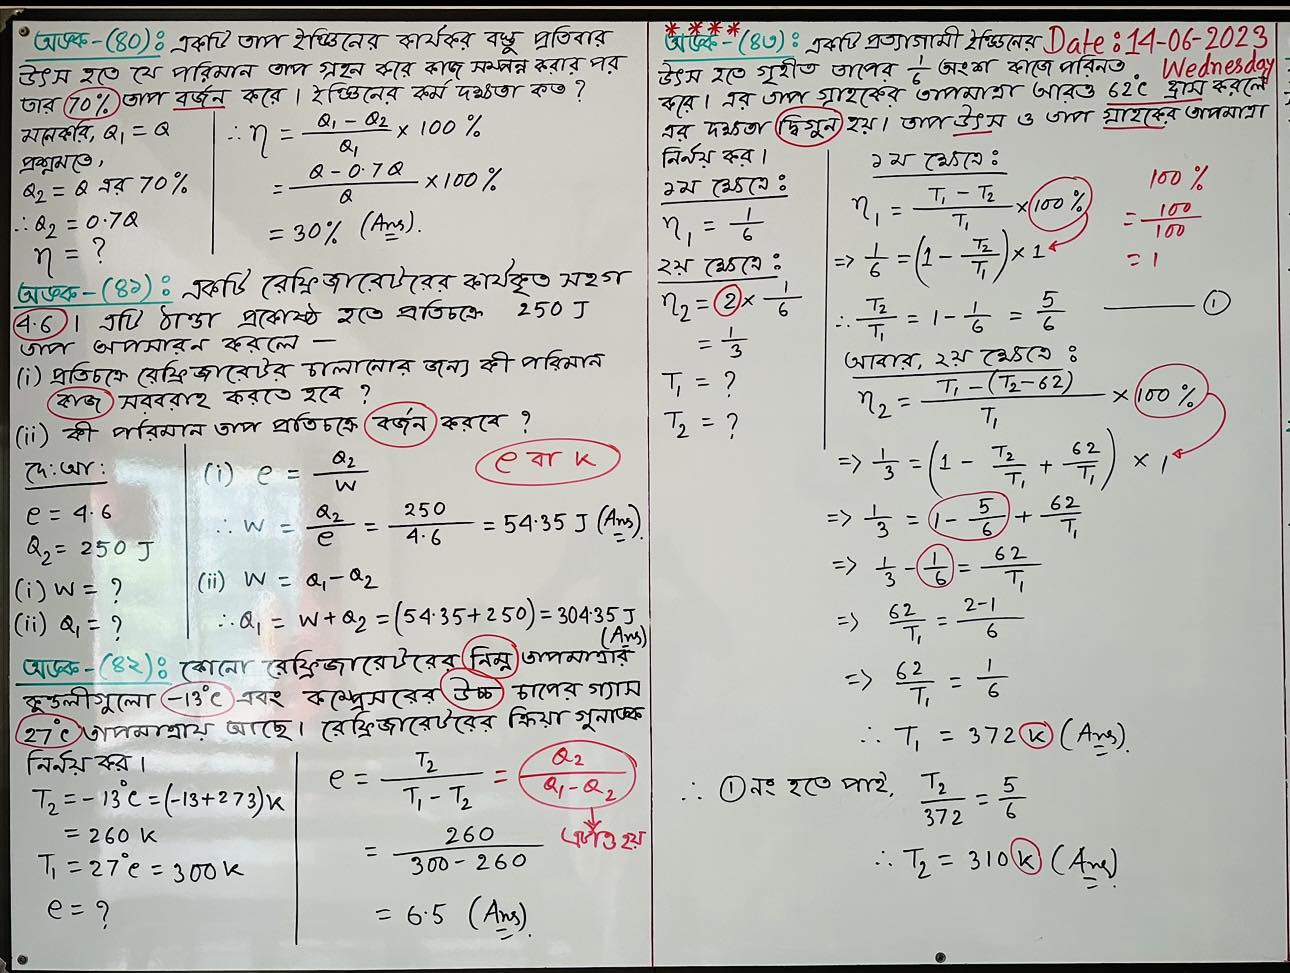 অঙ্ক-(৪০): একটি তাপ ইঞ্জিনের কার্যকর বস্তু প্রতিবার
উৎস হতে যে পরিমান তাপ গ্রহন করে কাজ সম্পন্ন করার পর
তার 70% তাপ বর্জন করে। ইঞ্জিনের কর্ম দক্ষতা কত?
মনেকরি, Q₁ = Q
প্রশ্নমতে,
Q₂ = Q এর 70%
∴ Q₂ = 0.7Q
η = ?
∴ η = (Q₁ - Q₂)/Q₁ × 100%
= (Q - 0.7Q)/Q × 100%
= 30% (Ans).
অঙ্ক-(৪১): একটি রেফ্রিজারেটরের কার্যকৃত সহগ
4.6। এটি ঠান্ডা প্রকোষ্ঠ হতে প্রতিচক্রে 250 J
তাপ অপসারন করলে —
(i) প্রতিচক্রে রেফ্রিজারেটর চালানোর জন্য কী পরিমান
কাজ সরবরাহ করতে হবে?
(ii) কী পরিমান তাপ প্রতিচক্রে বর্জন করবে?
দে:আ:
e = 4.6
Q₂ = 250 J
(i) W = ?
(ii) Q₁ = ?
(i) e = Q₂/W
e বা K
∴ W = Q₂/e = 250/4.6 = 54.35 J (Ans).
(ii) W = Q₁ - Q₂
∴ Q₁ = W + Q₂ = (54.35 + 250) = 304.35 J
(Ans)
অঙ্ক-(৪২): কোনো রেফ্রিজারেটরের নিম্ন তাপমাত্রার
কুন্ডলীগুলো -13°C এবং কম্প্রেসরের উচ্চ চাপের গ্যাস
27°C তাপমাত্রায় আছে। রেফ্রিজারেটরের ক্রিয়া গুনাঙ্ক
নির্নয় কর।
T₂ = -13°C = (-13+273)K
= 260 K
T₁ = 27°C = 300 K
e = ?
e = T₂/(T₁ - T₂) = Q₂/(Q₁ - Q₂)
এটাও হয়
= 260/(300 - 260)
= 6.5 (Ans)
* * * *
অঙ্ক-(৪৩): একটি প্রত্যাগামী ইঞ্জিনের
Date: 14-06-2023
Wednesday
উৎস হতে গৃহীত তাপের 1/6 অংশ কাজে পরিনত
করে। এর তাপ গ্রাহকের তাপমাত্রা আরও 62°C হ্রাস করলে
এর দক্ষতা দ্বিগুন হয়। তাপ উৎস ও তাপ গ্রাহকের তাপমাত্রা
নির্নয় কর।
১ম ক্ষেত্রে:
η₁ = 1/6
২য় ক্ষেত্রে:
η₂ = 2 × 1/6
= 1/3
T₁ = ?
T₂ = ?
১ম ক্ষেত্রে:
η₁ = (T₁ - T₂)/T₁ × 100%
100%
= 100/100
= 1
=> 1/6 = (1 - T₂/T₁) × 1
∴ T₂/T₁ = 1 - 1/6 = 5/6 —— ①
আবার, ২য় ক্ষেত্রে:
η₂ = (T₁ - (T₂ - 62))/T₁ × 100%
=> 1/3 = (1 - T₂/T₁ + 62/T₁) × 1
=> 1/3 = 1 - 5/6 + 62/T₁
=> 1/3 - 1/6 = 62/T₁
=> 62/T₁ = (2-1)/6
=> 62/T₁ = 1/6
∴ T₁ = 372 K (Ans).
∴ ① নং হতে পাই, T₂/372 = 5/6
∴ T₂ = 310 K (Ans)